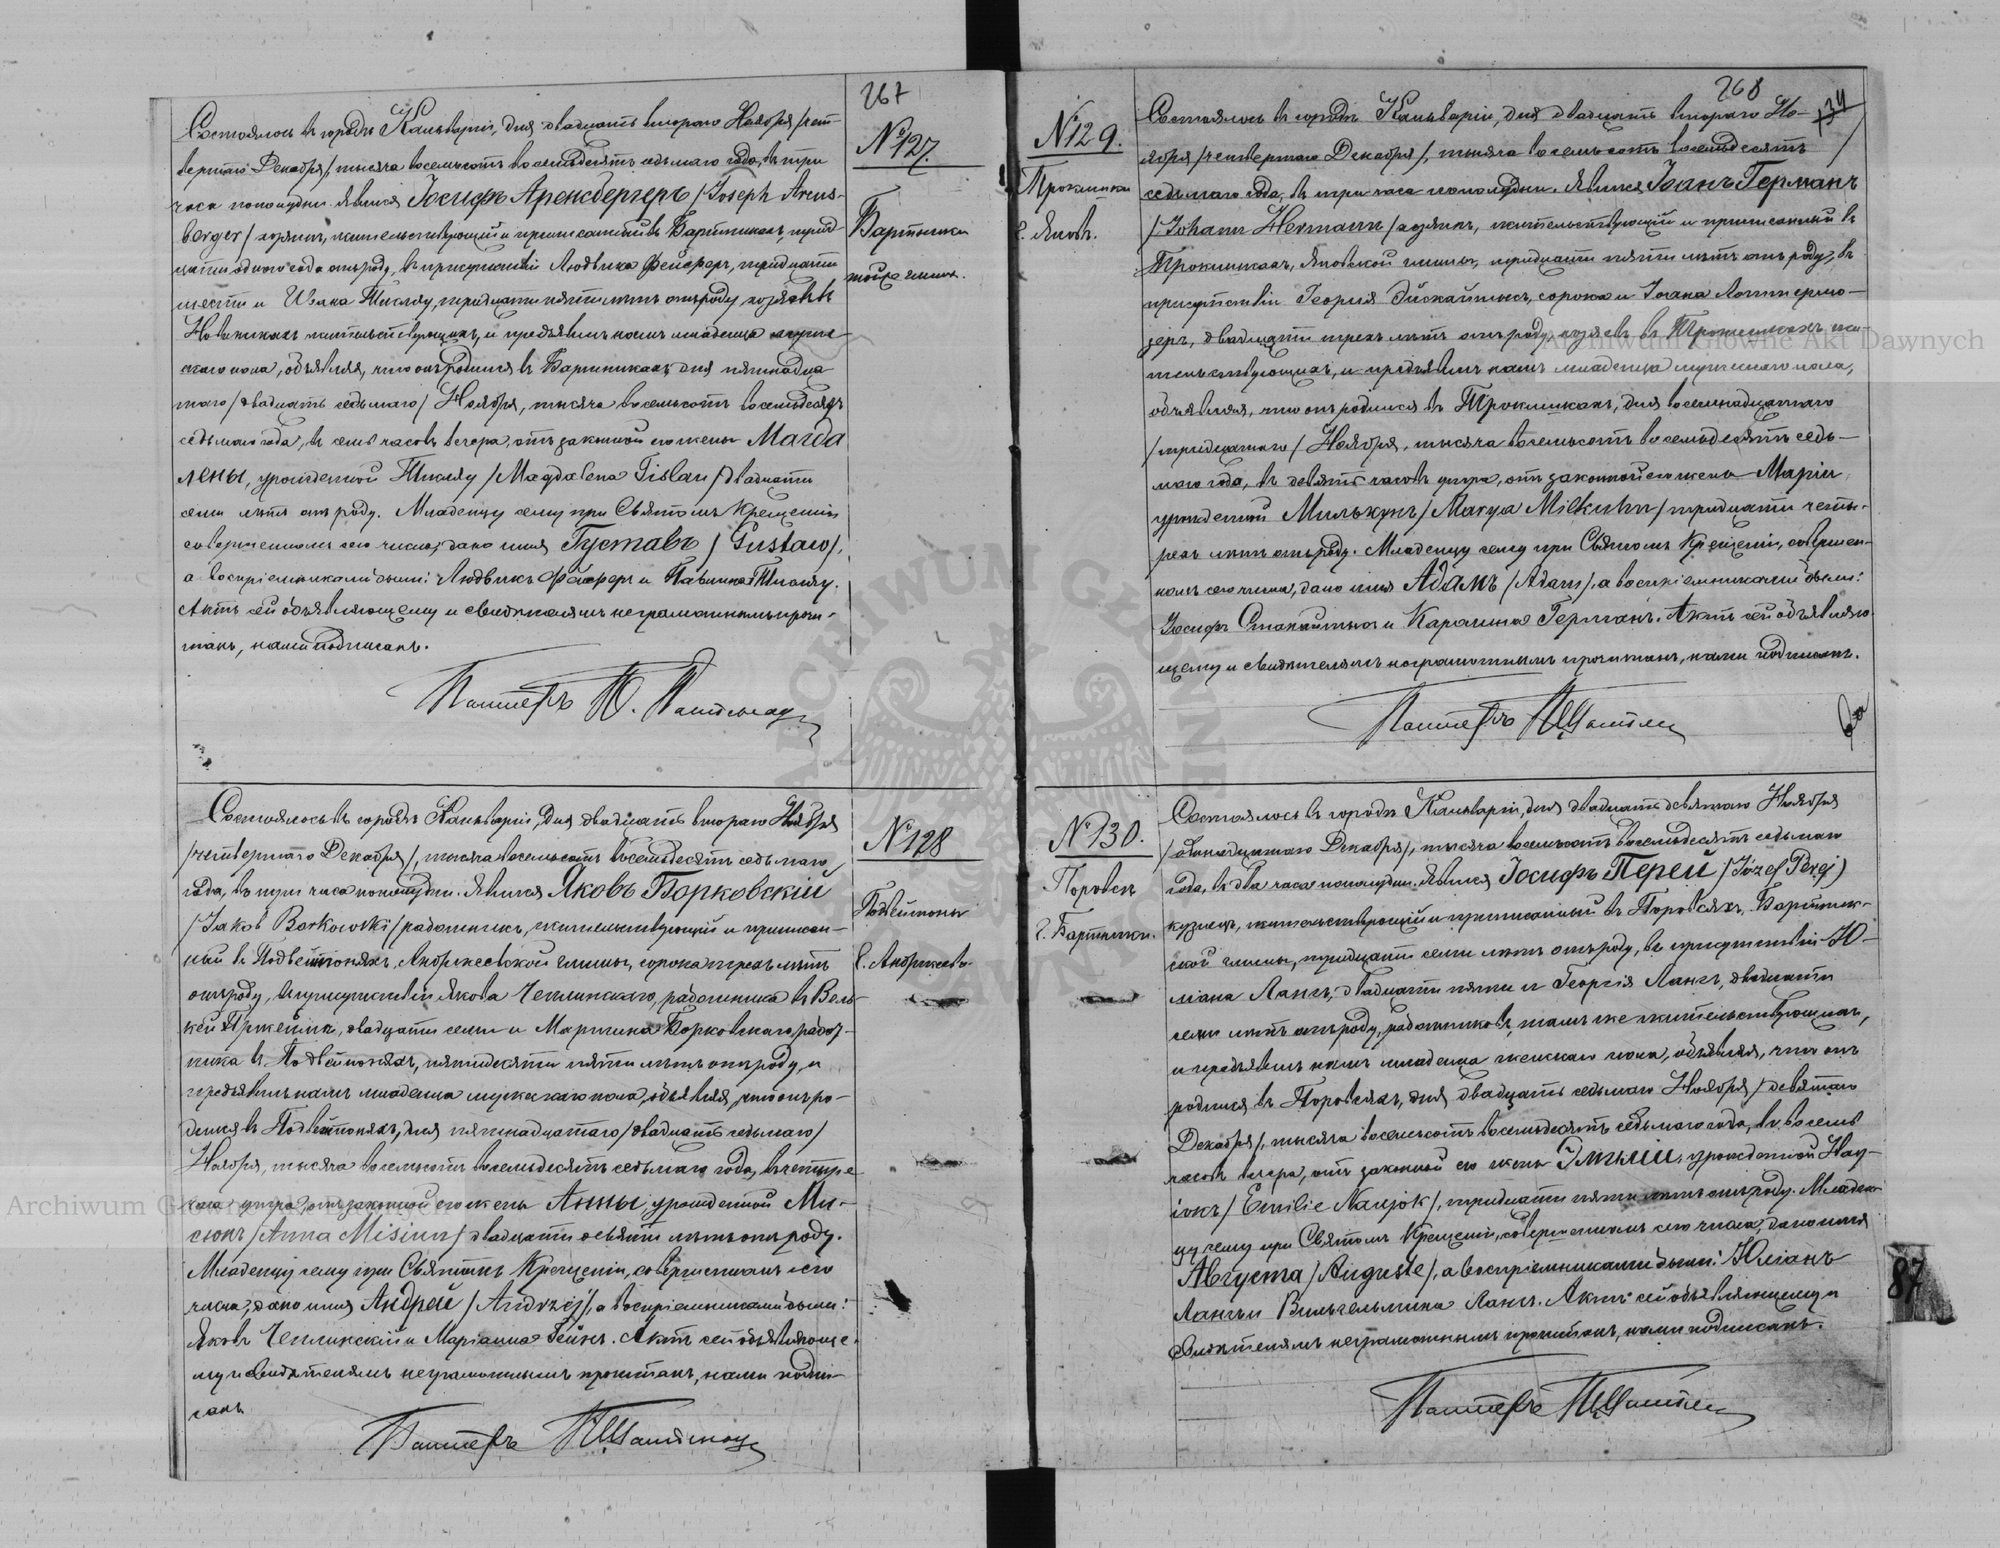 267
Состоялось въ городѣ Кальваріи, дня двадцать втораго Ноября /чет-
вертаго Декабря/ тысяча восемьсотъ восемьдесятъ седьмаго года, въ три
часа пополудни. Явился Іосифъ Аренсбергеръ /Joseph Arens-
berger/ хозяинъ, жительствующій и приписанный въ Бартникахъ, трид-
цати одного года отъ роду, въ присутствіи Людвика Фейферъ, тридцати
шести и Ивана Тисляу, тридцати пяти лѣтъ отъ роду хозяевъ въ
жительствующихъ, и предъявилъ намъ младенца мужес-
каго пола, объявляя, что онъ родился въ Бартникахъ дня пятнадца-
таго /двадцать седьмаго/ Ноября, тысяча восемьсотъ восемьдесятъ
седьмаго года, въ семь часовъ вечера, отъ законной его жены Магда
лены, урожденной Тисляу /Magdalena Tislau/ двадцати
семи лѣтъ отъ роду. Младенцу сему при Святомъ Крещеніи
совершенномъ сего числа, дано имя Густавъ /Gustaw/,
а воспріемниками были: Людвикъ Фейферъ и Павлина Тисляу.
Актъ сей объявляющему и свидѣтелямъ неграмотнымъ прочи-
танъ, нами подписанъ.
Пасторъ
№ 127.
Бартники
той же гмины.
Состоялось въ городѣ Кальваріи, дня двадцать втораго Ноября
/четвертаго Декабря/, тысяча восемьсотъ восемьдесятъ седьмаго
года, въ три часа пополудни. Явился Яковъ Борковскій
/Jakob Borkowski/ работникъ, жительствующій и приписан-
ный въ Подвейтоняхъ, Андржеевской гмины, сорока трехъ лѣтъ
отъ роду, въ присутствіи Якова Чеплинскаго, работника въ Вель-
кей двадцати семи и Мартина Борковскаго работ-
ника въ Подвейтоняхъ, пятидесяти пяти лѣтъ отъ роду, и
предъявилъ намъ младенца мужескаго пола, объявляя, что онъ ро-
дился въ Подвейтоняхъ, дня пятнадцатаго /двадцать седьмаго/
Ноября, тысяча восемьсотъ восемьдесятъ седьмаго года, въ четыре
часа утра, отъ законной его жены Анны, урожденной Ми-
сюнъ /Anna Misiun/ двадцати девяти лѣтъ отъ роду.
Младенцу сему при Святомъ Крещеніи, совершенномъ сего
числа, дано имя Андрей /Andrzej/, а воспріемниками были:
Яковъ Чеплинскій и Маріанна Гейнъ. Актъ сей объявляюще-
му и свидѣтелямъ неграмотнымъ прочитанъ, нами подпи-
санъ
Пасторъ
№ 128
Подвейтоны
г. Андржеево
268
134
№ 129.
Трокиники
г. Яновъ.
Состоялось въ городѣ Кальваріи, дня двадцать втораго Но-
ября /четвертаго Декабря/, тысяча восемьсотъ восемьдесятъ
седьмаго года, въ три часа пополудни. Явился Іоанъ Германъ
/Johann Hermann/ хозяинъ, жительствующій и приписанный въ
Трокиникахъ, Яновской гмины, тридцати пяти лѣтъ отъ роду, въ
присутствіи Георгія сорока и Іоана Лоттермо-
зеръ, двадцати трехъ лѣтъ отъ роду, хозяевъ въ Трокиникахъ жи-
тельствующихъ, и предъявилъ намъ младенца мужескаго пола,
объявляя, что онъ родился въ Трокиникахъ, дня восемнадцатаго
/тридцатаго/ Ноября, тысяча восемьсотъ восемьдесятъ седь-
маго года, въ девять часовъ утра, отъ законной его жены Маріи
урожденной Милькунъ /Marya Milkuhn/ тридцати четы-
рехъ лѣтъ отъ роду. Младенцу сему при Святомъ Крещеніи, совершен-
номъ сего числа, дано имя Адамъ /Adam/, а воспріемниками были:
Іосифъ и Каролина Германъ. Актъ сей объявляю-
щему и свидѣтелямъ неграмотнымъ прочитанъ, нами подписанъ.
Пасторъ
№ 130.
Поровси
г. Бартники.
Состоялось въ городѣ Кальваріи, дня двадцать девятаго Ноября
/одинадцатаго Декабря/, тысяча восемьсотъ восемьдесятъ седьмаго
года, въ два часа пополудни. Явился Іосифъ Перей /Józef Perej/
кузнецъ, жительствующій и приписанный въ Поровсяхъ, Бартник-
ской гмины, тридцати семи лѣтъ отъ роду, въ присутствіи Ю-
ліана Лангъ, двадцати пяти и Георгія Лангъ, двадцати
семи лѣтъ отъ роду, работниковъ, тамъ же жительствующихъ,
и предъявилъ намъ младенца женскаго пола, объявляя, что онъ
родился въ Поровсяхъ, дня двадцать седьмаго Ноября /девятаго
Декабря/, тысяча восемьсотъ восемьдесятъ седьмаго года, въ восемь
часовъ вечера, отъ законной его жены Эмиліи, урожденной Нау-
іокъ /Emilie Naujok/, тридцати пяти лѣтъ отъ роду. Младен-
цу сему при Святомъ Крещеніи, совершенномъ сего числа, дано имя
Августа /Auguste/, а воспріемниками были: Юліанъ
Лангъ и Вильгельмина Лангъ. Актъ сей объявляющему и
свидѣтелямъ неграмотнымъ прочитанъ, нами подписанъ.
Пасторъ
87
Archiwum Główne Akt Dawnych
Archiwum Główne Akt Dawnych
ARCHIWUM GŁÓWNE